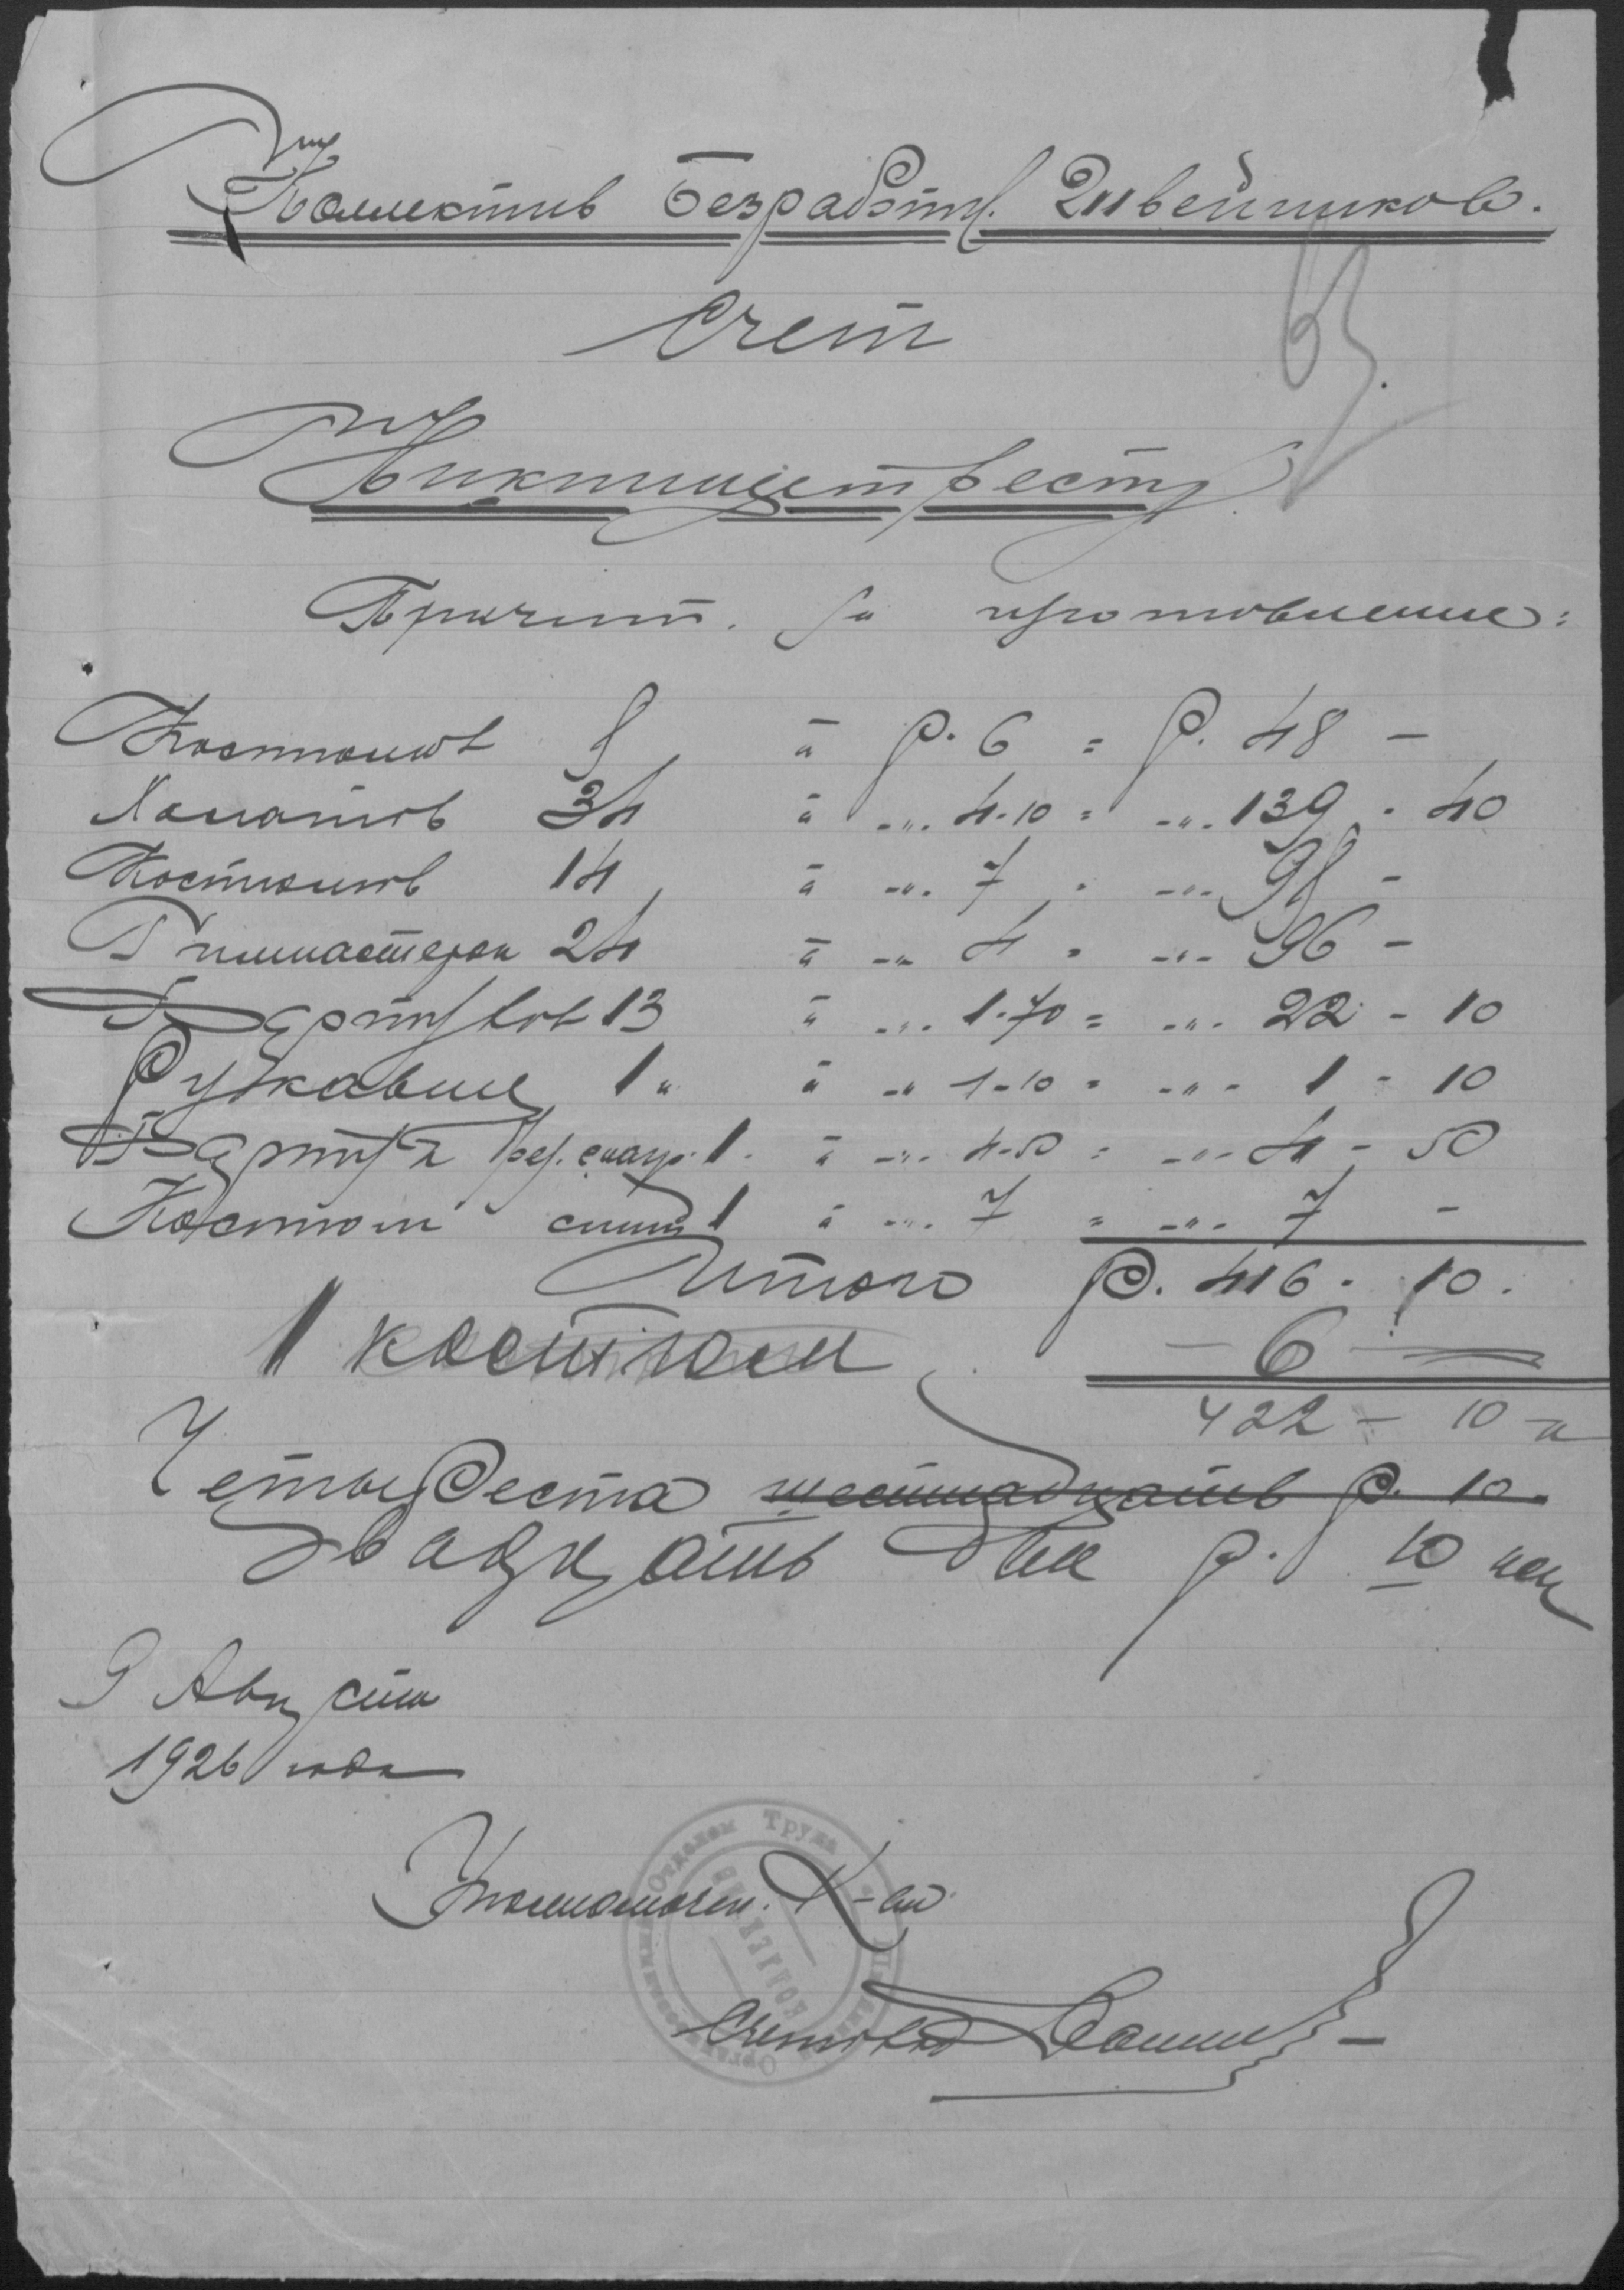 Коллектив Безработн. Швейников.
Счет
Причит. за изготовление:
Костюмов 8 à р. 6 = р. 48 —
Халатов 34 à -"- 4-10 = -"- 139 - 40
Костюмов 14 à -"- 7 = -"- 98 —
Гимнастерок 24 à -"- 4 = -"- 96 —
Фартуков 13 à -"- 1-70 = -"- 22 - 10
Рукавиц 1 " à -" 1-10 = -"- 1 - 10
Фартук 1 à -"- 4-50 = -"- 4 - 50
Костюм 1 à -"- 7 = -"- 7 —
Итого р. 416 - 10.
1 костюм — 6 —
422 - 10 к
Четыреста шестнадцать р. 10
двадцать два р. 10 коп
9 Августа
1926 года
Уполномочен. К-ва
Счетовод
Отделом Труда